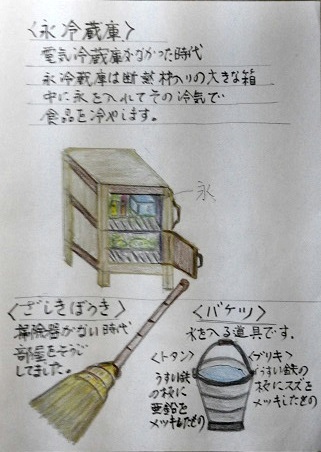 〈氷冷蔵庫〉
電気冷蔵庫がなかった時代
氷冷蔵庫は断熱材入りの大きな箱
中に氷を入れてその冷気で
食品を冷やします。
氷
〈ざしきぼうき〉
掃除器がない時代
部屋をそうじ
してました。
〈バケツ〉
水を入る道具です。
〈トタン〉
うすい鉄
の板に
亜鉛を
メッキしたもの
〈ブリキ〉
うすい鉄の
板にスズを
メッキしたもの